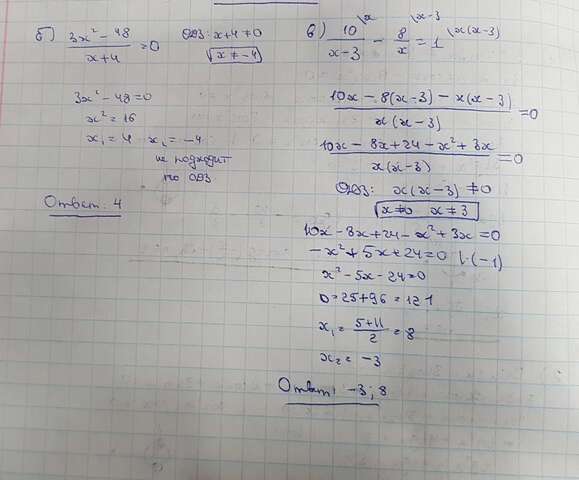 б) (3x² - 48)/(x+4) = 0 ОДЗ: x+4 ≠ 0
x ≠ -4
3x² - 48 = 0
x² = 16
x₁ = 4 x₂ = -4
не подходит
по ОДЗ
Ответ: 4
в) 10/(x-3) \x - 8/x \x-3 = 1 \x(x-3)
(10x - 8(x-3) - x(x-3))/(x(x-3)) = 0
(10x - 8x + 24 - x² + 3x)/(x(x-3)) = 0
ОДЗ: x(x-3) ≠ 0
x ≠ 0 x ≠ 3
10x - 8x + 24 - x² + 3x = 0
-x² + 5x + 24 = 0 |·(-1)
x² - 5x - 24 = 0
D = 25 + 96 = 121
x₁ = (5+11)/2 = 8
x₂ = -3
Ответ: -3; 8